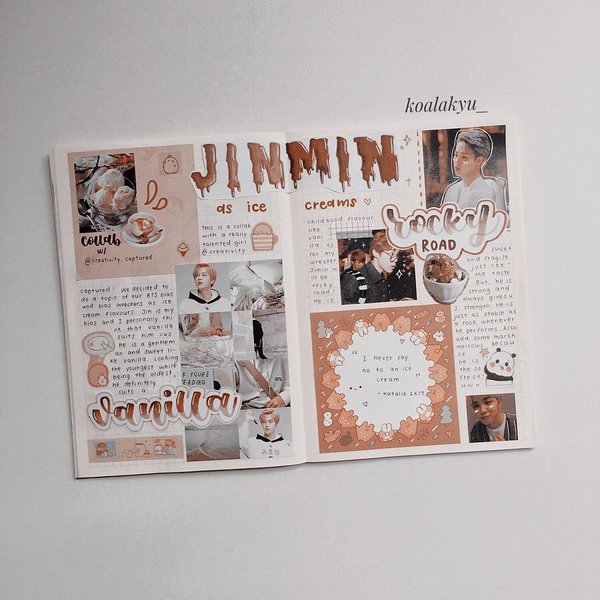 koalakyu_
JINMIN
as ice creams
collab
w/
@creativity.captured
This is a collab
with a really
talented girl
@creativity.
captured! We decided to
do a topic of our BTS bias
and bias wreckers as ice
cream flavours. Jin is my
bias and I personally thi
nk that vanilla
suits him cus
he is a gentlem
an and sweet li
ke vanilla. Looking
the youngest whilst
being the oldest,
he definitely
suits a
vanilla
childhood flavour
like
vani
lla. As
for my
wrecker
Jimin w
ill be
rocky
road!
He is
rocky
ROAD
sweet
and fragile
just like
the taste
But, he
is strong and
always gives u
just as stable as
a rock whenever
he performs. Also
add some marsh
mellows becau
se he
is the
softes
uwu
" I never say
no to an ice
cream. "
- natalie 2k19